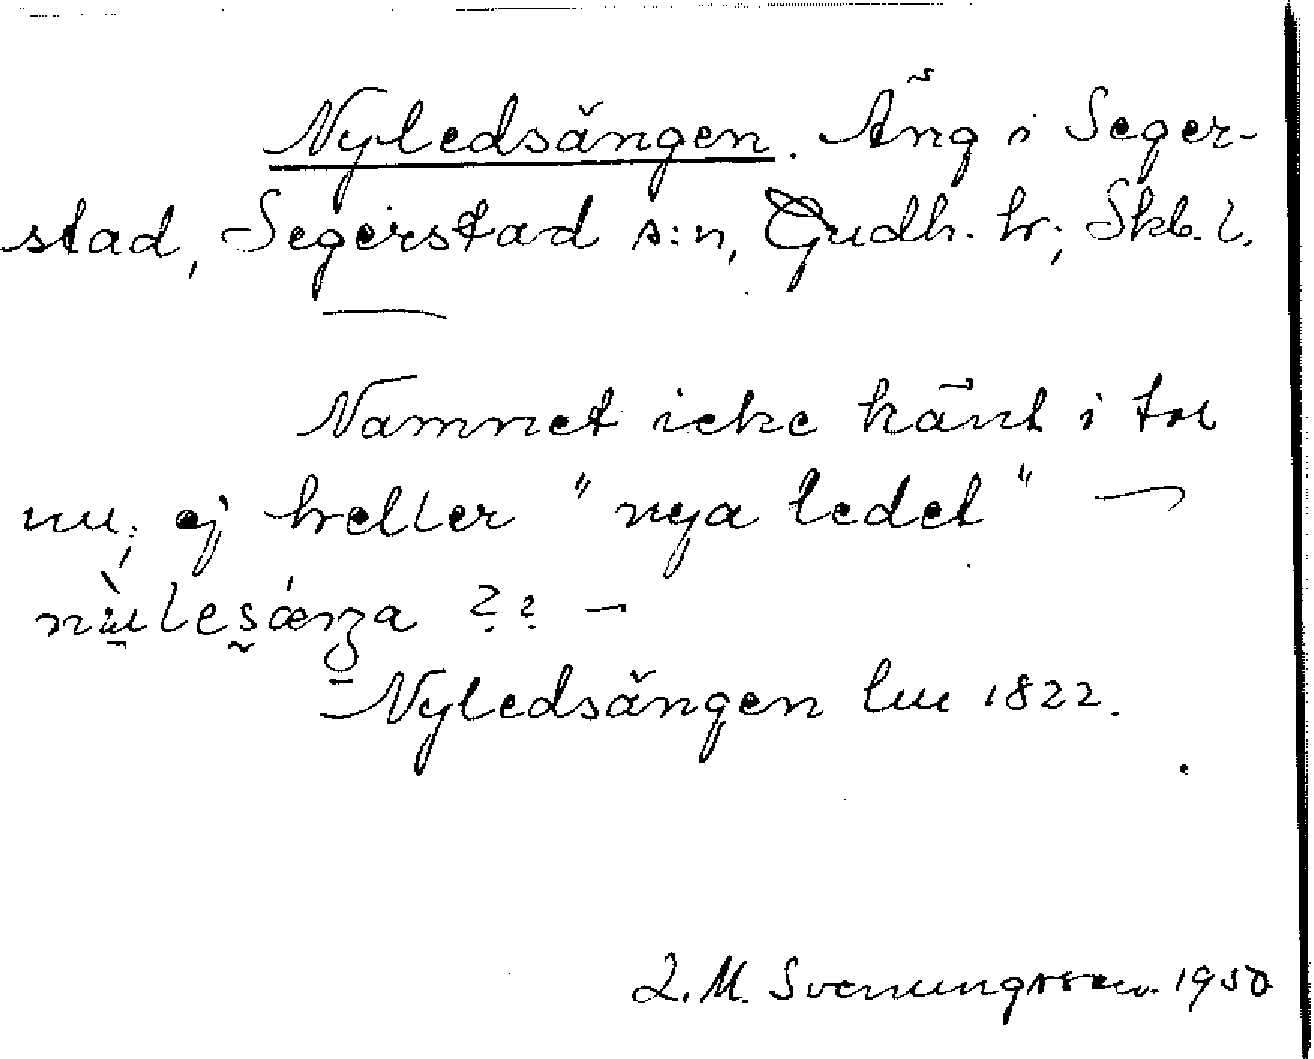 Nyledsängen. Äng i Seger-
stad, Segerstad s:n, Gudh. hr; Skb. l.
Namnet icke känt i trt
nu; ej heller "nya ledet" –
?? –
Nyledsängen lm 1822.
L. M. Svenungsson. 1950